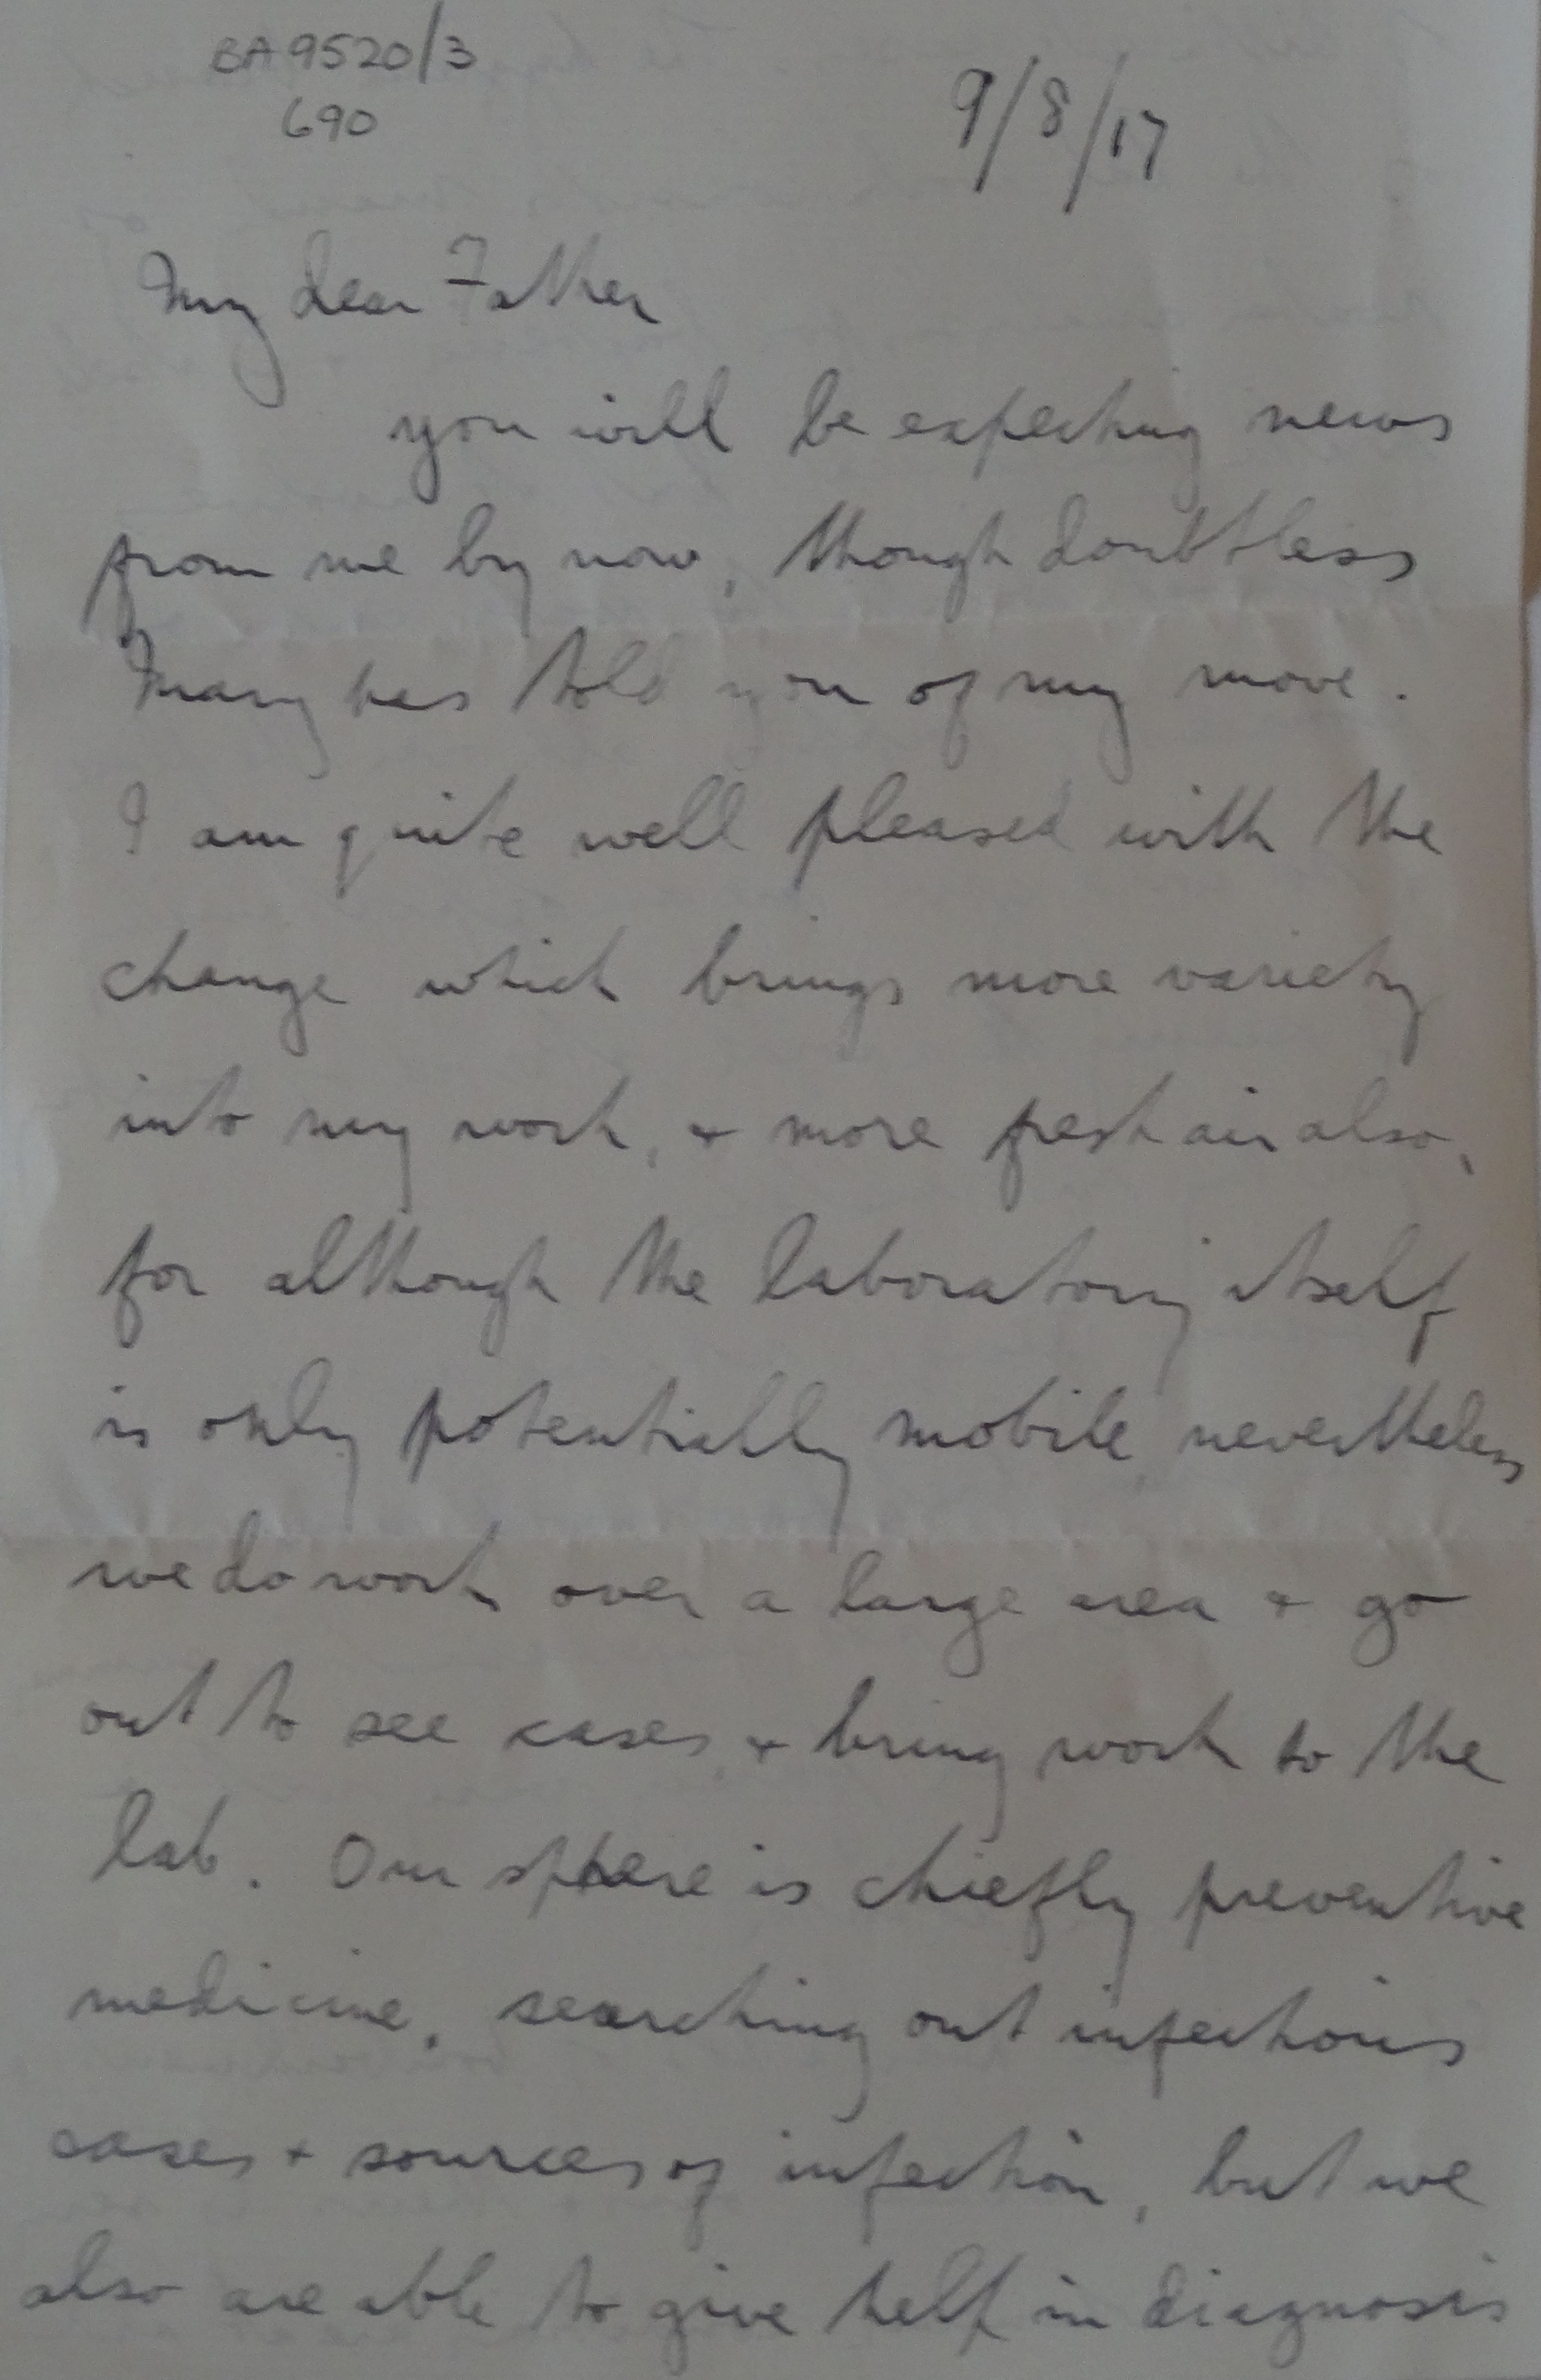 BA9520/3
690
9/8/17
My dear Father
you will be expecting news
from me by now, though doubtless
Mary has told you of my move.
I am quite well pleased with the
change which brings more variety
into my work, + more fresh air also,
for although the laboratory itself
is only potentially mobile, nevertheless
we do work over a large area + go
out to see cases, + bring work to the
lab. Our sphere is chiefly preventive
medicine, searching out infectious
cases + sources of infection, but we
also are able to give help in diagnosis